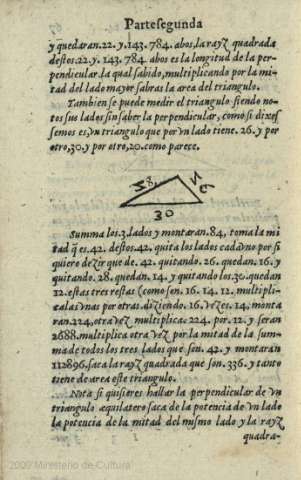 Parte segunda
y quedaran.22.y.143.784.abos, la rayz quadrada
destos.22.y.143.784.abos es la longitud de la per-
pendicular.la qual sabido, multiplicando por la mi-
tad del lado mayor sabras la area del triangulo.
Tambien se puede medir el triangulo siendo no-
tos sus lados sin saber la perpendicular, como si dixes
semos es, vn triangulo que por vn lado tiene.26.y por
otro, 30.y por otro, 20.como parece.
30
Summa los.3.lados y montaran.84, toma la mi
tad q̃ es.42.destos.42.quita los lados cada vno por si
quiero dezir que de.42.quitando.26.quedan.16.y
quitando.28.quedan.14.y quitando los.30.quedan
12.estas tres restas (como son.16.14.12.multipli-
calas vnas por otras.diziendo.16.vezes.14, monta
ran.224, otra vez multiplica.224.por.12.y seran
2688.multiplica otra vez por la mitad de la sum-
ma de todos los tres lados que son.42.y montaran
112896.saca la rayz quadrada que son.336.y tanto
tiene de area este triangulo.
Nota si quisieres hallar la perpendicular de vn
triangulo æquilatero saca de la potencia de vn lado
la potencia de la mitad del mismo lado y la rayz
quadra-
2009 Ministerio de Cultura